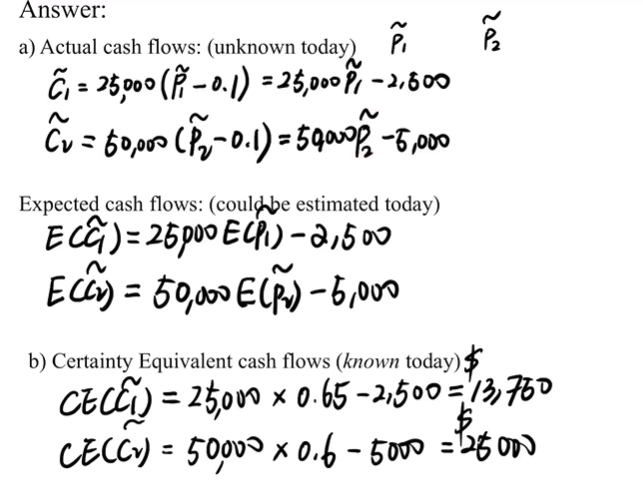 Answer:
a) Actual cash flows: (unknown today) P̃₁ P̃₂
C̃₁ = 25,000 (P̃₁ - 0.1) = 25,000 P̃₁ - 2,500
C̃₂ = 50,000 (P̃₂ - 0.1) = 50,000 P̃₂ - 5,000
Expected cash flows: (could be estimated today)
E(C̃₁) = 25,000 E(P̃₁) - 2,500
E(C̃₂) = 50,000 E(P̃₂) - 5,000
b) Certainty Equivalent cash flows (known today)
CE(C̃₁) = 25,000 × 0.65 - 2,500 = $13,750
CE(C̃₂) = 50,000 × 0.6 - 5000 = $25000